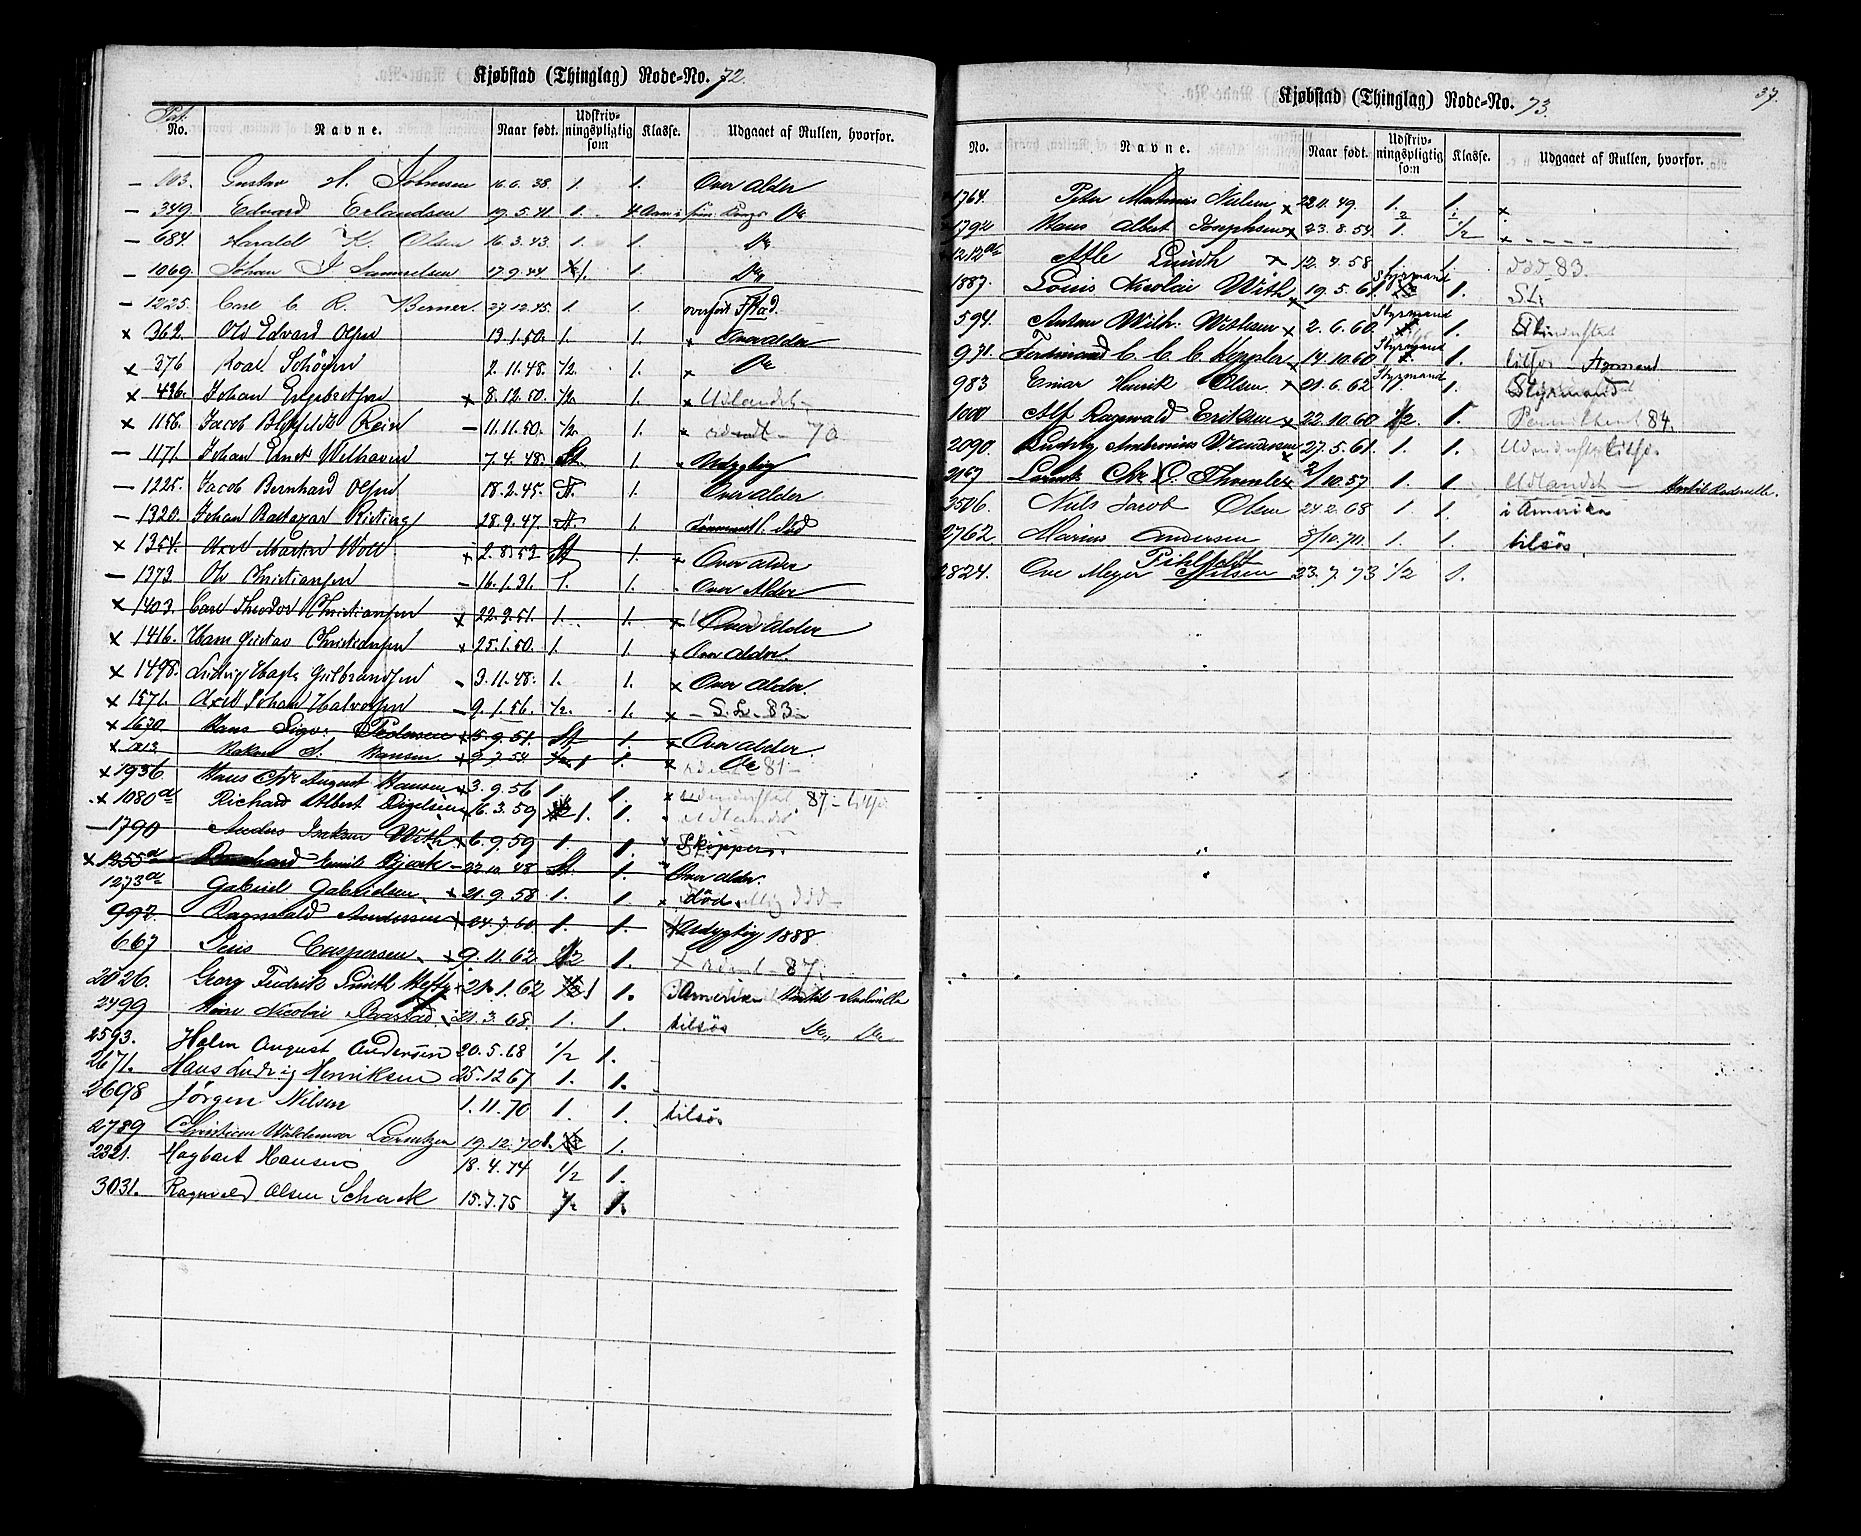 Kjøbstad (Thinglag) Rode-No. 72.
No. Navne. Naar født. Udskriv-ningspligtig som Klasse. Udgaaet af Rullen, hvorfor.
103. Gustav H. Johnsen 16.6.38. 1. 1. Over alder
349. Edvard Erlandsen 19.5.41. 1. Do
684. Harald K. Olsen 16.3.43. 1. 1. Do
1069. Johan J Samuelsen 17.9.44 1. 1. Do
1225. Carl C. R. Berner. 27.12.45. 1. 1. overført
x 362. Ole Edvard Olsen 13.1.50. 1. 1. x Over alder
x 376 Roal Schøyen 2.11.48. 1/2. 1. x Do
x 436. Johan Engebretsen x 8.12.50. 1/2. 1. x Udlandet
x 1156. Jacob Rein 11.11.50. 1/2. 1. 70
1171. Johan Ernst Welhaven 7.4.48. St. 1. Udygtig
1225. Jacob Bernhard Olsen 18.2.45. St. 1. Over alder
1320. Johan Baltazar Risting 28.9.47. St. 1. død
x 1354. Axel Martin Woll x 2.8.53. St 1. Over alder
1373. Ole Christiansen 16.1.31. 1. 1. Over Alder
x 1403. Carl Theodor Christiansen x 22.9.51. 1. 1. x Over alder
x 1416. Hans Gustav Christiansen x 25.1.50. 1. 1. x Over alder.
x 1498. Ludvig Gulbrandsen 3.11.48. 1. 1. x Over alder.
x 1571. Axel Johan Halvorsen 9.1.56. 1/2. 1. x S. L. 83
x 1630. Hans Pedersen x 15.9.51. St 1. x Over alder
Hakon S. Hansen x 1. x Do 81
x 1936 Hans Chr. August Hansen x 3.9.56 1. 1. x 87 - tilsøs
x 1080 a Richard Albert x 6.3.59 1. 1. Udlandet
1790 Anders Isaksen With x 6.9.59 1. 1. Skipper.
x 1255 a Emil Bjerk 22.10.48 St. 1. Over alder.
1273 a Gabriel Gabrielsen. x 21.9.58 1. 1. x død.
992. Ragnvald Andersen x 24.7.60 1. 1. Udygtig 1888.
667 Jens Caspersen. x 9.11.62 1/2 1. x 87.
2026. Georg Fredrik Smith 21.1.62 1. 1. i Amerika
2499 Nicolai 21.3.68. 1. 1. tilsøs Do Do
2593. Holm August Andersen 20.5.68 1/2 1.
2671. Hans Ludvig Henriksen 25.12.67 1. 1.
2698 Jørgen Nilsen 1.11.70 1. 1. tilsøs
2789 Christian Waldemar Lorentzen 19.12.70 1. 1.
2321. Hagbart Hansen 18.4.74 1/2 1.
3031. Ragnvald Olsen Schack 15.7.75 1/2 1.
37.
Kjøbstad (Thinglag) Rode-No. 73.
No. Navne. Naar født. Udskriv-ningspligtig som Klasse. Udgaaet af Rullen, hvorfor.
1764. Peter Martinius Nielsen x 22.11.49. 1. 1. x
1792 Hans Albert Josephsen x 23.8.54 1. 1/2 x
1212 a Atle Lundh x 12.4.58 1. 1. død 83.
1887. Louis Nicolai With x 19.5.61 Styrmand 1. St.
594. Anton Wilh. Wilhsen x 2.6.60 Styrmand 1.
931. Ferdinand C. C. C. Keppler x 14.10.60 Styrmand 1. tilsøs Styrmand
983 Einar Henrik Olsen. x 21.6.62 Styrmand 1. Styrmand
1000 Alf Ragnvald Eriksen x 22.10.60 1/2. 1. 84.
2090. Ludvig Ambrosius x 27.5.61. 1. 1. tilsøs.
2167 Chr. O. x 2/10.57 1. 1. Udlandet
3506. Nils Jacob Olsen 24.2.68 1. 1. i Amerika
2762. Marius Andersen 3/10.70. 1. 1. tilsøs.
2824. Ove Meyer Pihlfeldt Nilsen 23.7.73 1/2 1.